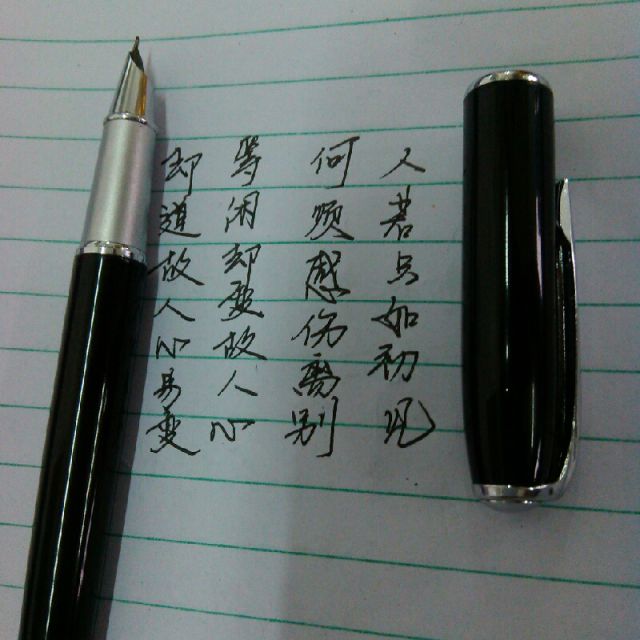 人若只如初见
何须感伤离别
等闲却变故人心
却道故人心易变